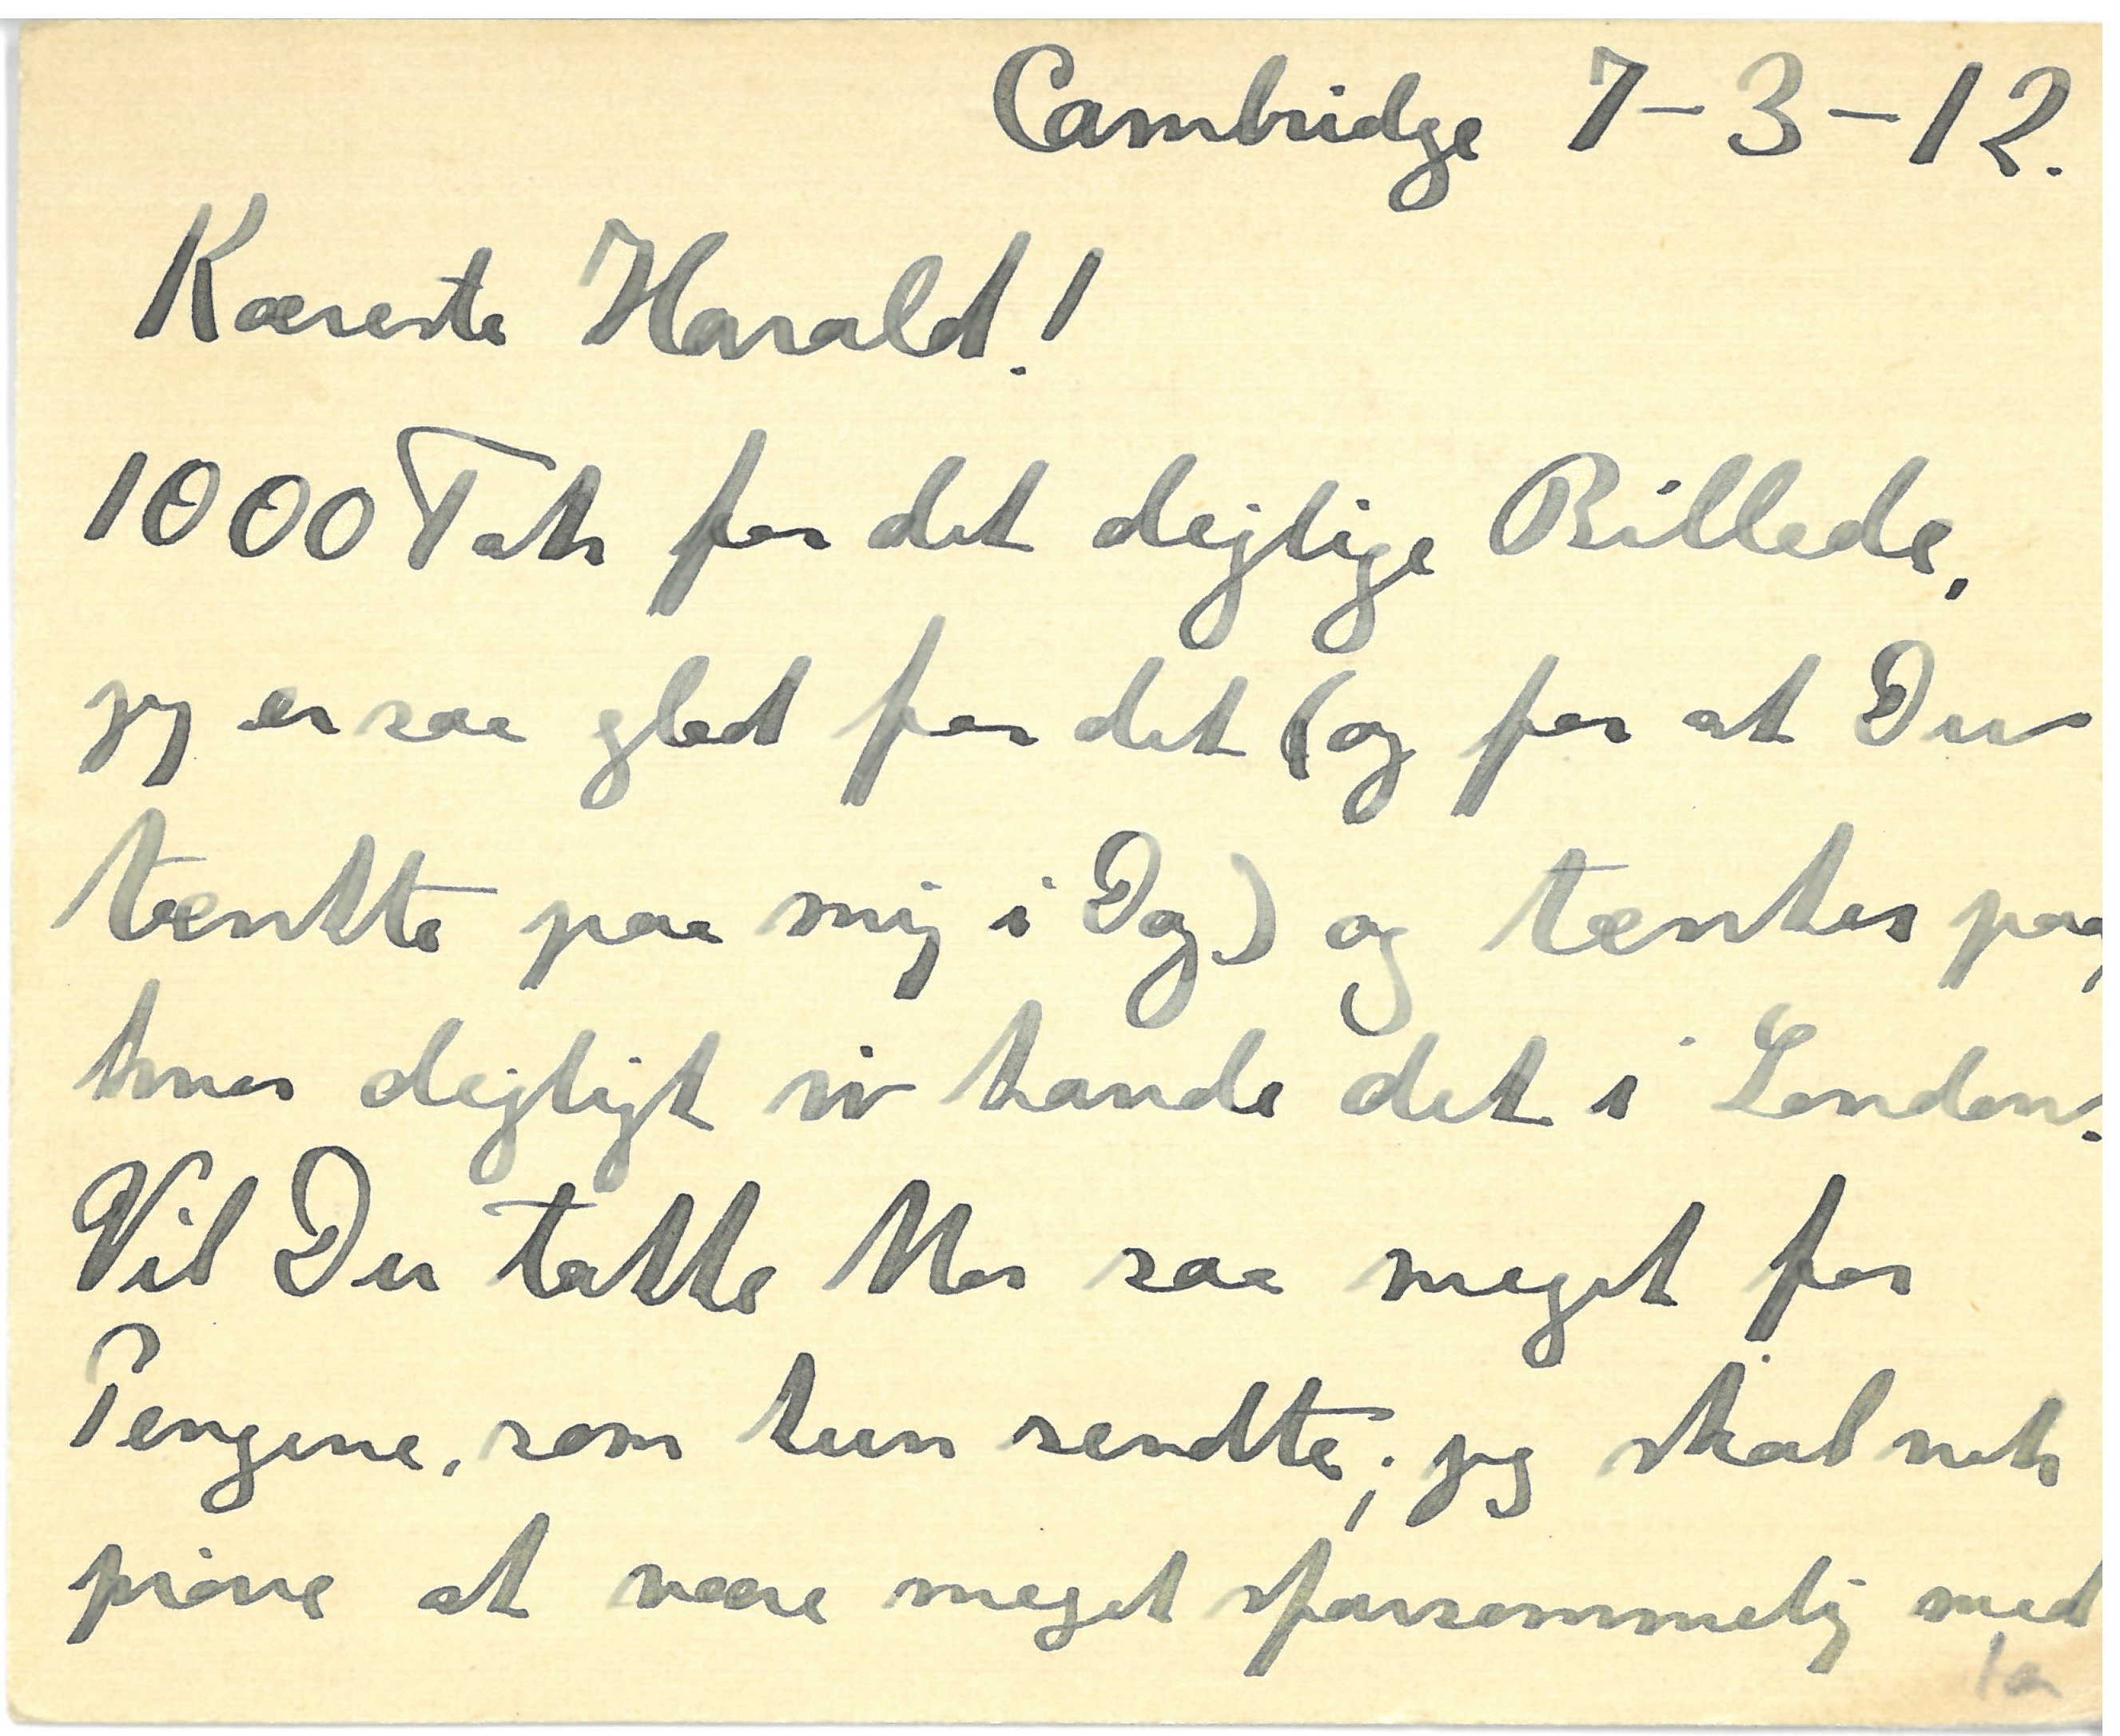 Cambridge 7-3-12.
Kæreste Harald!
1000 Tak for det dejlige Billede,
jeg er saa glad for det (og for at Du
tænkte paa mig i Dag) og tænker paa,
hvor dejligt vi havde det i London.
Vil Du takke Mor saa meget for
Pengene, som hun sendte; jeg skal nok
prøve at være meget sparsommelig med
1a